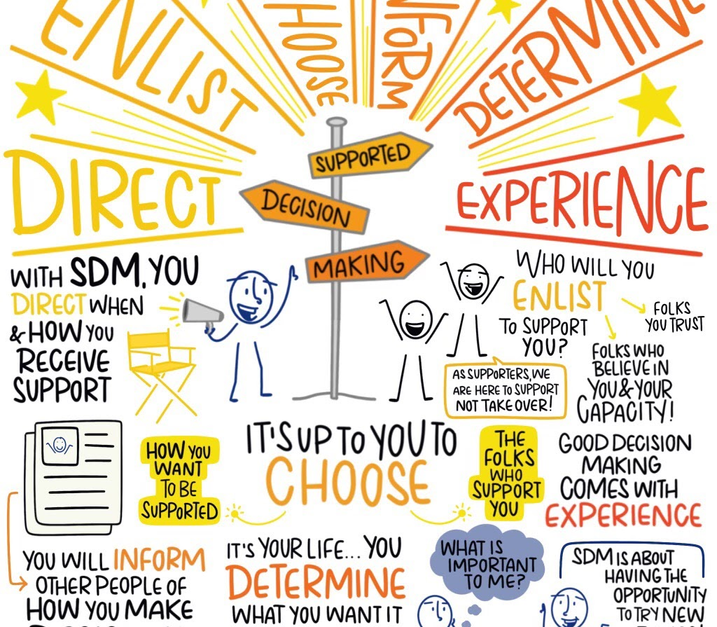 ENLIST
CHOOSE
INFORM
DETERMINE
DIRECT
EXPERIENCE
SUPPORTED
DECISION
MAKING
WITH SDM, YOU
DIRECT WHEN
& HOW YOU
RECEIVE
SUPPORT
WHO WILL YOU
ENLIST
TO SUPPORT
YOU?
FOLKS
YOU TRUST
FOLKS WHO
BELIEVE IN
YOU & YOUR
CAPACITY!
AS SUPPORTERS, WE
ARE HERE TO SUPPORT
NOT TAKE OVER!
IT'S UP TO YOU TO
CHOOSE
HOW YOU
WANT
TO BE
SUPPORTED
THE
FOLKS
WHO
SUPPORT
YOU
GOOD DECISION
MAKING
COMES WITH
EXPERIENCE
YOU WILL INFORM
OTHER PEOPLE OF
HOW YOU MAKE
IT'S YOUR LIFE... YOU
DETERMINE
WHAT YOU WANT IT
WHAT IS
IMPORTANT
TO ME?
SDM IS ABOUT
HAVING THE
OPPORTUNITY
TO TRY NEW